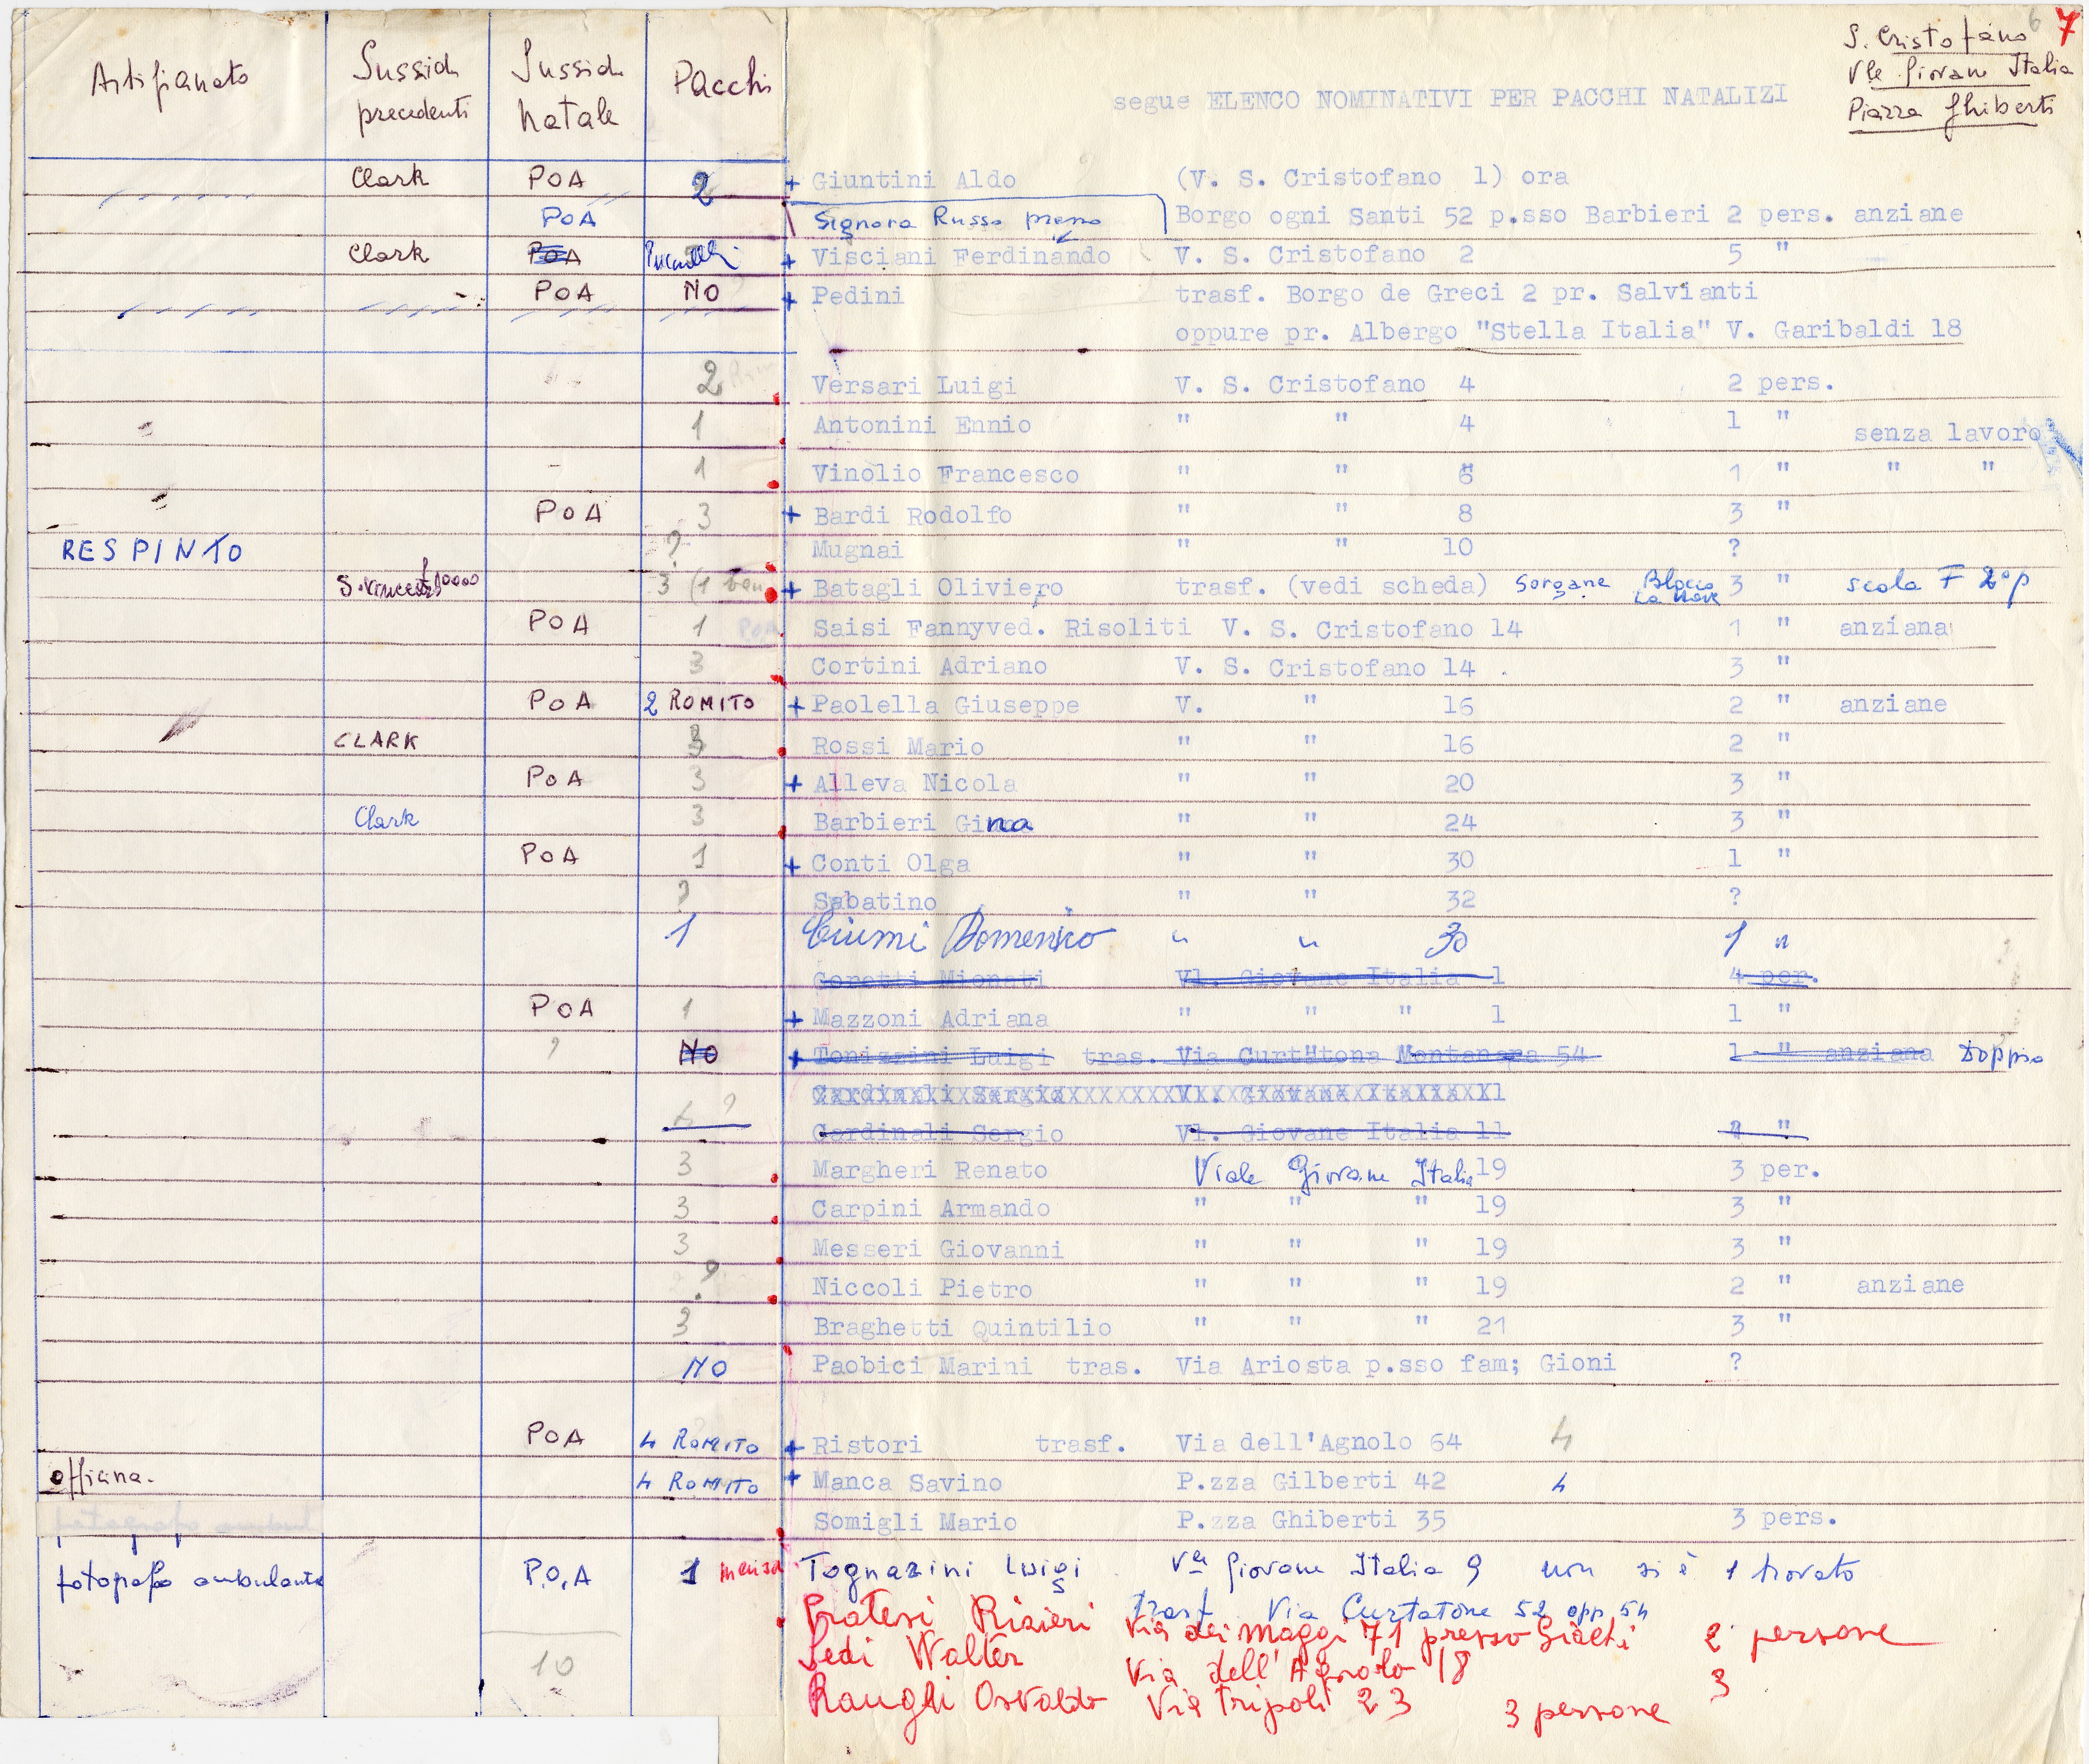 6 7
S. Cristofano
Vle Giovane Italia
Piazza Ghiberti
Artigianato Sussidi precedenti Sussidi Natale Pacchi
segue ELENCO NOMINATIVI PER PACCHI NATALIZI
Clark POA 2 + Giuntini Aldo (V. S. Cristofano 1) ora
POA Signora Russo presso Borgo ogni Santi 52 p.sso Barbieri 2 pers. anziane
Clark POA + Visciani Ferdinando V. S. Cristofano 2 5 "
POA NO + Pedini trasf. Borgo de Greci 2 pr. Salvianti
oppure pr. Albergo "Stella Italia" V. Garibaldi 18
2 Versari Luigi V. S. Cristofano 4 2 pers.
1 Antonini Ennio " " 4 1 " senza lavoro
1 Vinolio Francesco " " 6 1 " " "
POA 3 + Bardi Rodolfo " " 8 3 "
RESPINTO ? Mugnai " " 10 ?
S. Vincenzo 3 (1 + Batagli Oliviero trasf. (vedi scheda) Sorgane Blocco La Nave 3 " scala F 2° p
POA 1 Saisi Fannyved. Risoliti V. S. Cristofano 14 1 " anziana
3 Cortini Adriano V. S. Cristofano 14 3 "
POA 2 ROMITO + Paolella Giuseppe V. " 16 2 " anziane
CLARK 3 Rossi Mario " " 16 2 "
POA 3 + Alleva Nicola " " 20 3 "
Clark 3 Barbieri Gina " " 24 3 "
POA 1 + Conti Olga " " 30 1 "
? Sabatino " " 32 ?
1 Ciumi Domenico " " 30 1 "
Goretti Mionati Vl. Giovane Italia 1 4 per.
POA 1 + Mazzoni Adriana " " " 1 1 "
? NO + Toniazini Luigi tras. Via Curtatone Montanara 54 1 " anziana Doppio
Cardinali Sergio Vl. Giovane Italia 11
6 ? Cardinali Sergio Vl. Giovane Italia 11 "
3 Margheri Renato Viale Giovane Italia 19 3 per.
3 Carpini Armando " " " 19 3 "
3 Messeri Giovanni " " " 19 3 "
? Niccoli Pietro " " " 19 2 " anziane
3 Braghetti Quintilio " " " 21 3 "
NO Paobici Marini tras. Via Ariosta p.sso fam; Gioni ?
POA 4 ROMITO + Ristori trasf. Via dell'Agnolo 64 4
officina. 4 ROMITO + Manca Savino P.zza Gilberti 42 4
Somigli Mario P.zza Ghiberti 35 3 pers.
fotografo ambulante P.O.A 1 mensa Tognazini Luigi Vle Giovane Italia 9 non si è trovato
trasf. Via Curtatone 52 opp 54
Pratesi Risieri Via dei Maggi 71 presso Giachi 2 persone
Sedi Walter Via dell'Agnolo 18 3
10 Raughi Osvaldo Via Tripoli 23 3 persone